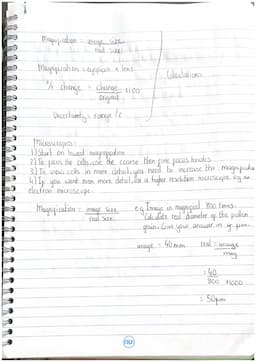 Magnification = image size
real size
Magnification = eyepiece x lens
% change = change x100
original
Calculations
Uncertainty = range /2
Microscopes:
1) Start on lowest magnification
2) To focus the cells, use the coarse then fine focus knobs
3) To view cells in more detail, you need to increase the magnification
4) If you want even more detail, use a higher resolution microscope eg an
electron microscope
Magnification = image size
real size
eg Image is magnified 800 times.
Calculate real diameter of the pollen
grain. Give your answer in µm.
image = 40mm real = image
mag
= 40
800 x1000
= 50µm